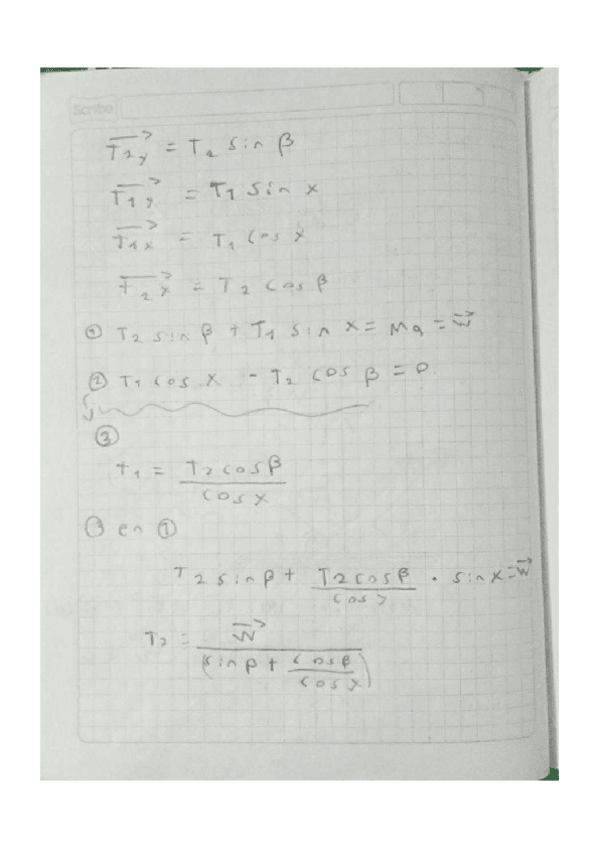 Scribe
T⃗₂y = T₂ sin β
T⃗₁y = T₁ sin x
T⃗₁x = T₁ cos x
T⃗₂x = T₂ cos β
① T₂ sin β + T₁ sin x = Mg = w⃗
② T₁ cos x - T₂ cos β = 0
③
t₁ = T₂ cos β / cos x
③ en ①
T₂ sin β + T₂ cos β / cos x · sin x = w⃗
T₂ = w⃗ / (sin β + cos β / cos x)